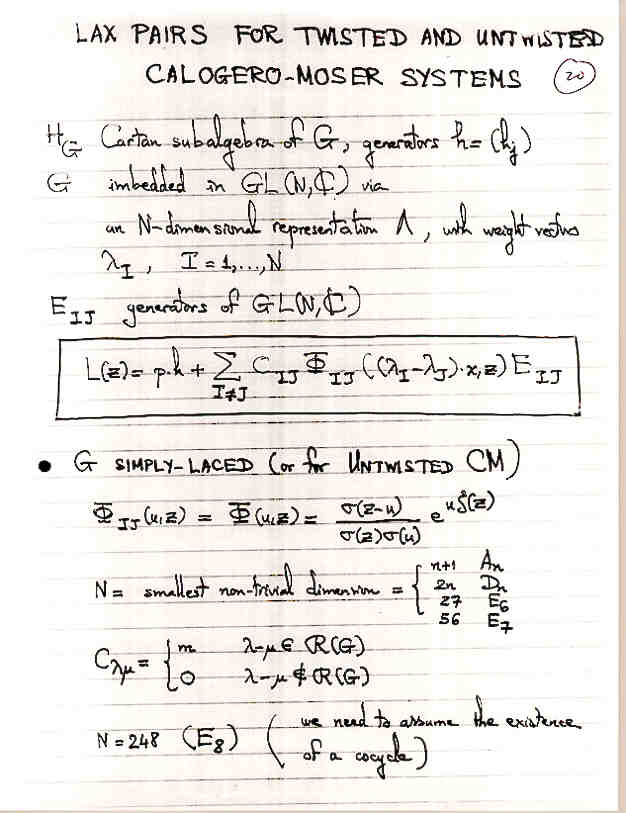 LAX PAIRS FOR TWISTED AND UNTWISTED
CALOGERO-MOSER SYSTEMS 20
H_G Cartan subalgebra of G, generators h = (h_j)
G imbedded in GL(N,ℂ) via
an N-dimensional representation Λ, with weight vectors
λ_I, I = 1,...,N
E_IJ generators of GL(N,ℂ)
L(z) = p·h + Σ_{I≠J} C_IJ Φ_IJ((λ_I-λ_J)·x,z) E_IJ
• G SIMPLY-LACED (or for UNTWISTED CM)
Φ_IJ(u,z) = Φ(u,z) = σ(z-u)/(σ(z)σ(u)) e^{uζ(z)}
N = smallest non-trivial dimension = { n+1 A_n
2n D_n
27 E_6
56 E_7
C_λμ = { m λ-μ ∈ R(G)
0 λ-μ ∉ R(G)
N = 248 (E_8) (we need to assume the existence
of a cocycle)